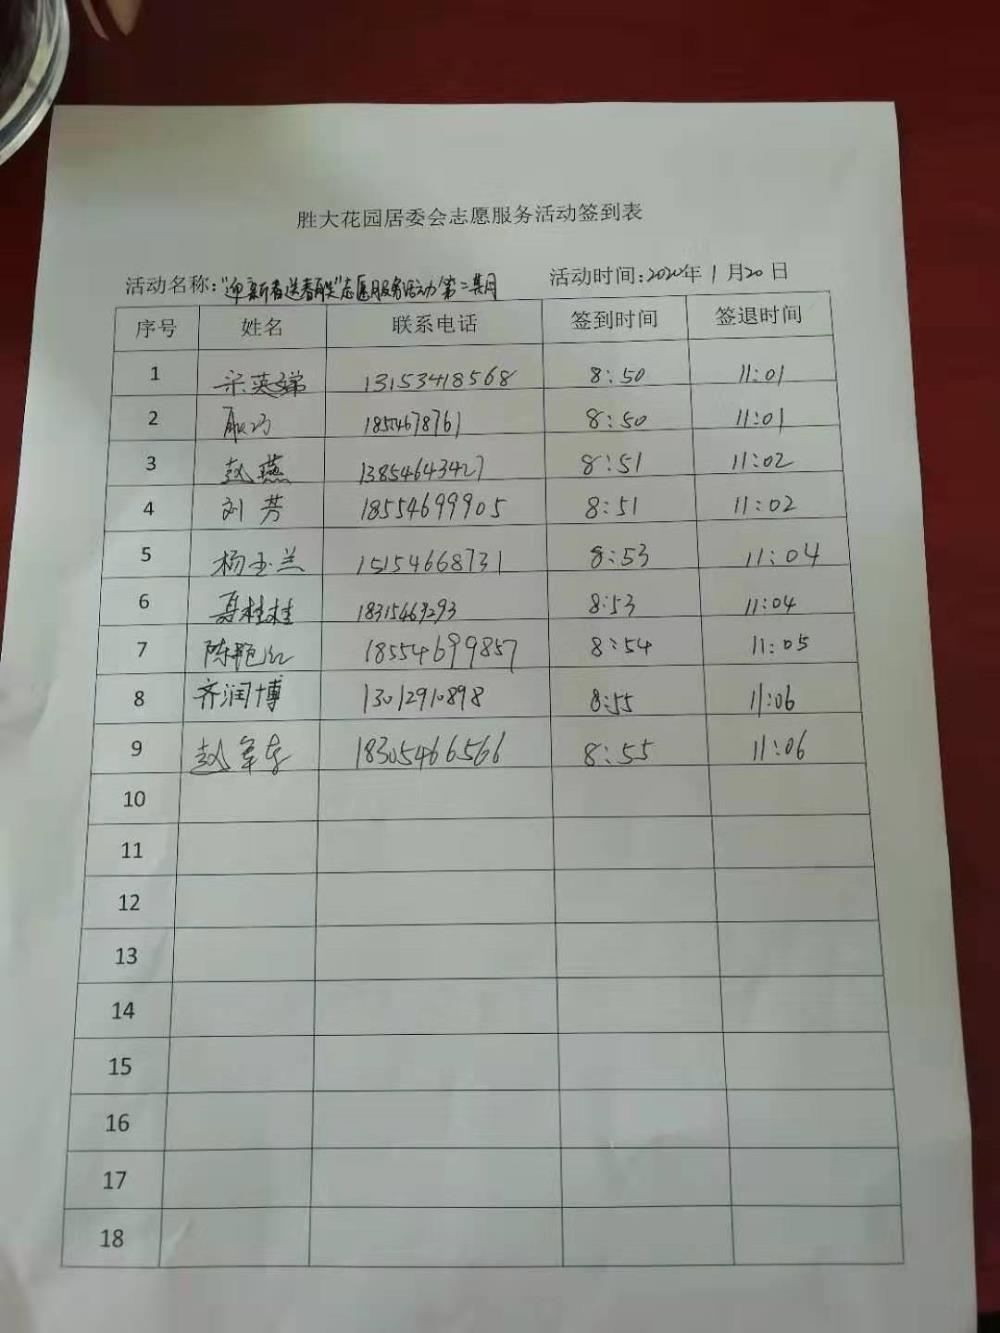 胜大花园居委会志愿服务活动签到表
活动名称:"迎新春送春联"志愿服务活动第二期 活动时间:2020年1月20日
序号 姓名 联系电话 签到时间 签退时间
1 宋英娣 13153418568 8:50 11:01
2 1854678761 8:50 11:01
3 赵燕 13854643427 8:51 11:02
4 刘芳 18554699905 8:51 11:02
5 杨玉兰 15154668731 8:53 11:04
6 聂桂桂 18315469293 8:53 11:04
7 陈艳红 18554699857 8:54 11:05
8 齐润博 13012910898 8:55 11:06
9 赵 18305466566 8:55 11:06
10
11
12
13
14
15
16
17
18